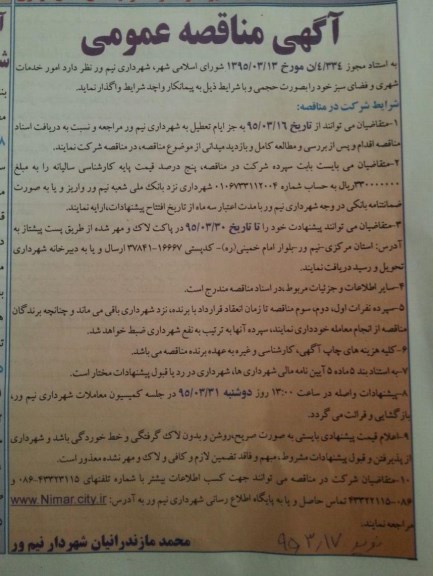 آگهی مناقصه عمومی
به استناد مجوز ۴/۳۳۴/ن مورخ ۱۳۹۵/۰۳/۱۳ شورای اسلامی شهر، شهرداری نیم ور نظر دارد امور خدمات
شهری و فضای سبز خود را بصورت حجمی و با شرایط ذیل به پیمانکار واجد شرایط واگذار نماید.
شرایط شرکت در مناقصه:
۱-متقاضیان می توانند از تاریخ ۹۵/۰۳/۱۶ به جز ایام تعطیل به شهرداری نیم ور مراجعه و نسبت به دریافت اسناد
مناقصه اقدام و پس از بررسی و مطالعه کامل و بازدید میدانی از موضوع مناقصه، در مناقصه شرکت نمایند.
۲-متقاضیان می بایست بابت سپرده شرکت در مناقصه، پنج درصد قیمت پایه کارشناسی سالیانه را به مبلغ
۳۳۰۰۰۰۰۰۰ریال به حساب شماره ۰۱۰۶۷۳۳۱۱۲۰۰۴ شهرداری نزد بانک ملی شعبه نیم ور واریز و یا به صورت
ضمانتنامه بانکی در وجه شهرداری نیم ور با مدت اعتبار سه ماه از تاریخ افتتاح پیشنهادات،ارایه نمایند.
۳-متقاضیان می توانند پیشنهادت خود را تا تاریخ ۹۵/۰۳/۳۰ در پاکت لاک و مهر شده از طریق پست پیشتاز به
آدرس: استان مرکزی-نیم ور-بلوار امام خمینی(ره)- کدپستی ۱۶۶۶۷-۳۷۸۴۱ ارسال و یا به دبیرخانه شهرداری
تحویل و رسید دریافت نمایند.
۴-سایر اطلاعات و جزئیات مربوط،در اسناد مناقصه مندرج است.
۵-سپرده نفرات اول، دوم، سوم مناقصه تا زمان انعقاد قرارداد با برنده، نزد شهرداری باقی می ماند و چنانچه برندگان
مناقصه از انجام معامله خودداری نمایند، سپرده آنها به ترتیب به نفع شهرداری ضبط خواهد شد.
۶-کلیه هزینه های چاپ آگهی، کارشناسی و غیره به عهده برنده مناقصه می باشد.
۷-به استناد بند ۵ ماده ۵ آیین نامه مالی شهرداری ها، شهرداری در رد یا قبول پیشنهادات مختار است.
۸-پیشنهادات واصله در ساعت ۱۳:۰۰ روز دوشنبه ۹۵/۰۳/۳۱ در جلسه کمیسیون معاملات شهرداری نیم ور،
بازگشایی و قرائت می گردد.
۹-اعلام قیمت پیشنهادی بایستی به صورت صریح،روشن و بدون لاک گرفتگی و خط خوردگی باشد و شهرداری
از پذیرفتن و قبول پیشنهادات مشروط، مبهم و فاقد تضمین لازم و کافی و لاک و مهر نشده معذور است.
۱۰-متقاضیان شرکت در مناقصه می توانند جهت کسب اطلاعات بیشتر با شماره تلفنهای ۴۳۳۲۳۱۱۵-۰۸۶ و
۴۳۳۲۲۱۱۵-۰۸۶ تماس حاصل و یا به پایگاه اطلاع رسانی شهرداری نیم ور به آدرس: www.Nimar.city.ir
مراجعه نمایند.
محمد مازندرانیان شهردار نیم ور
۹۵،۳،۱۷